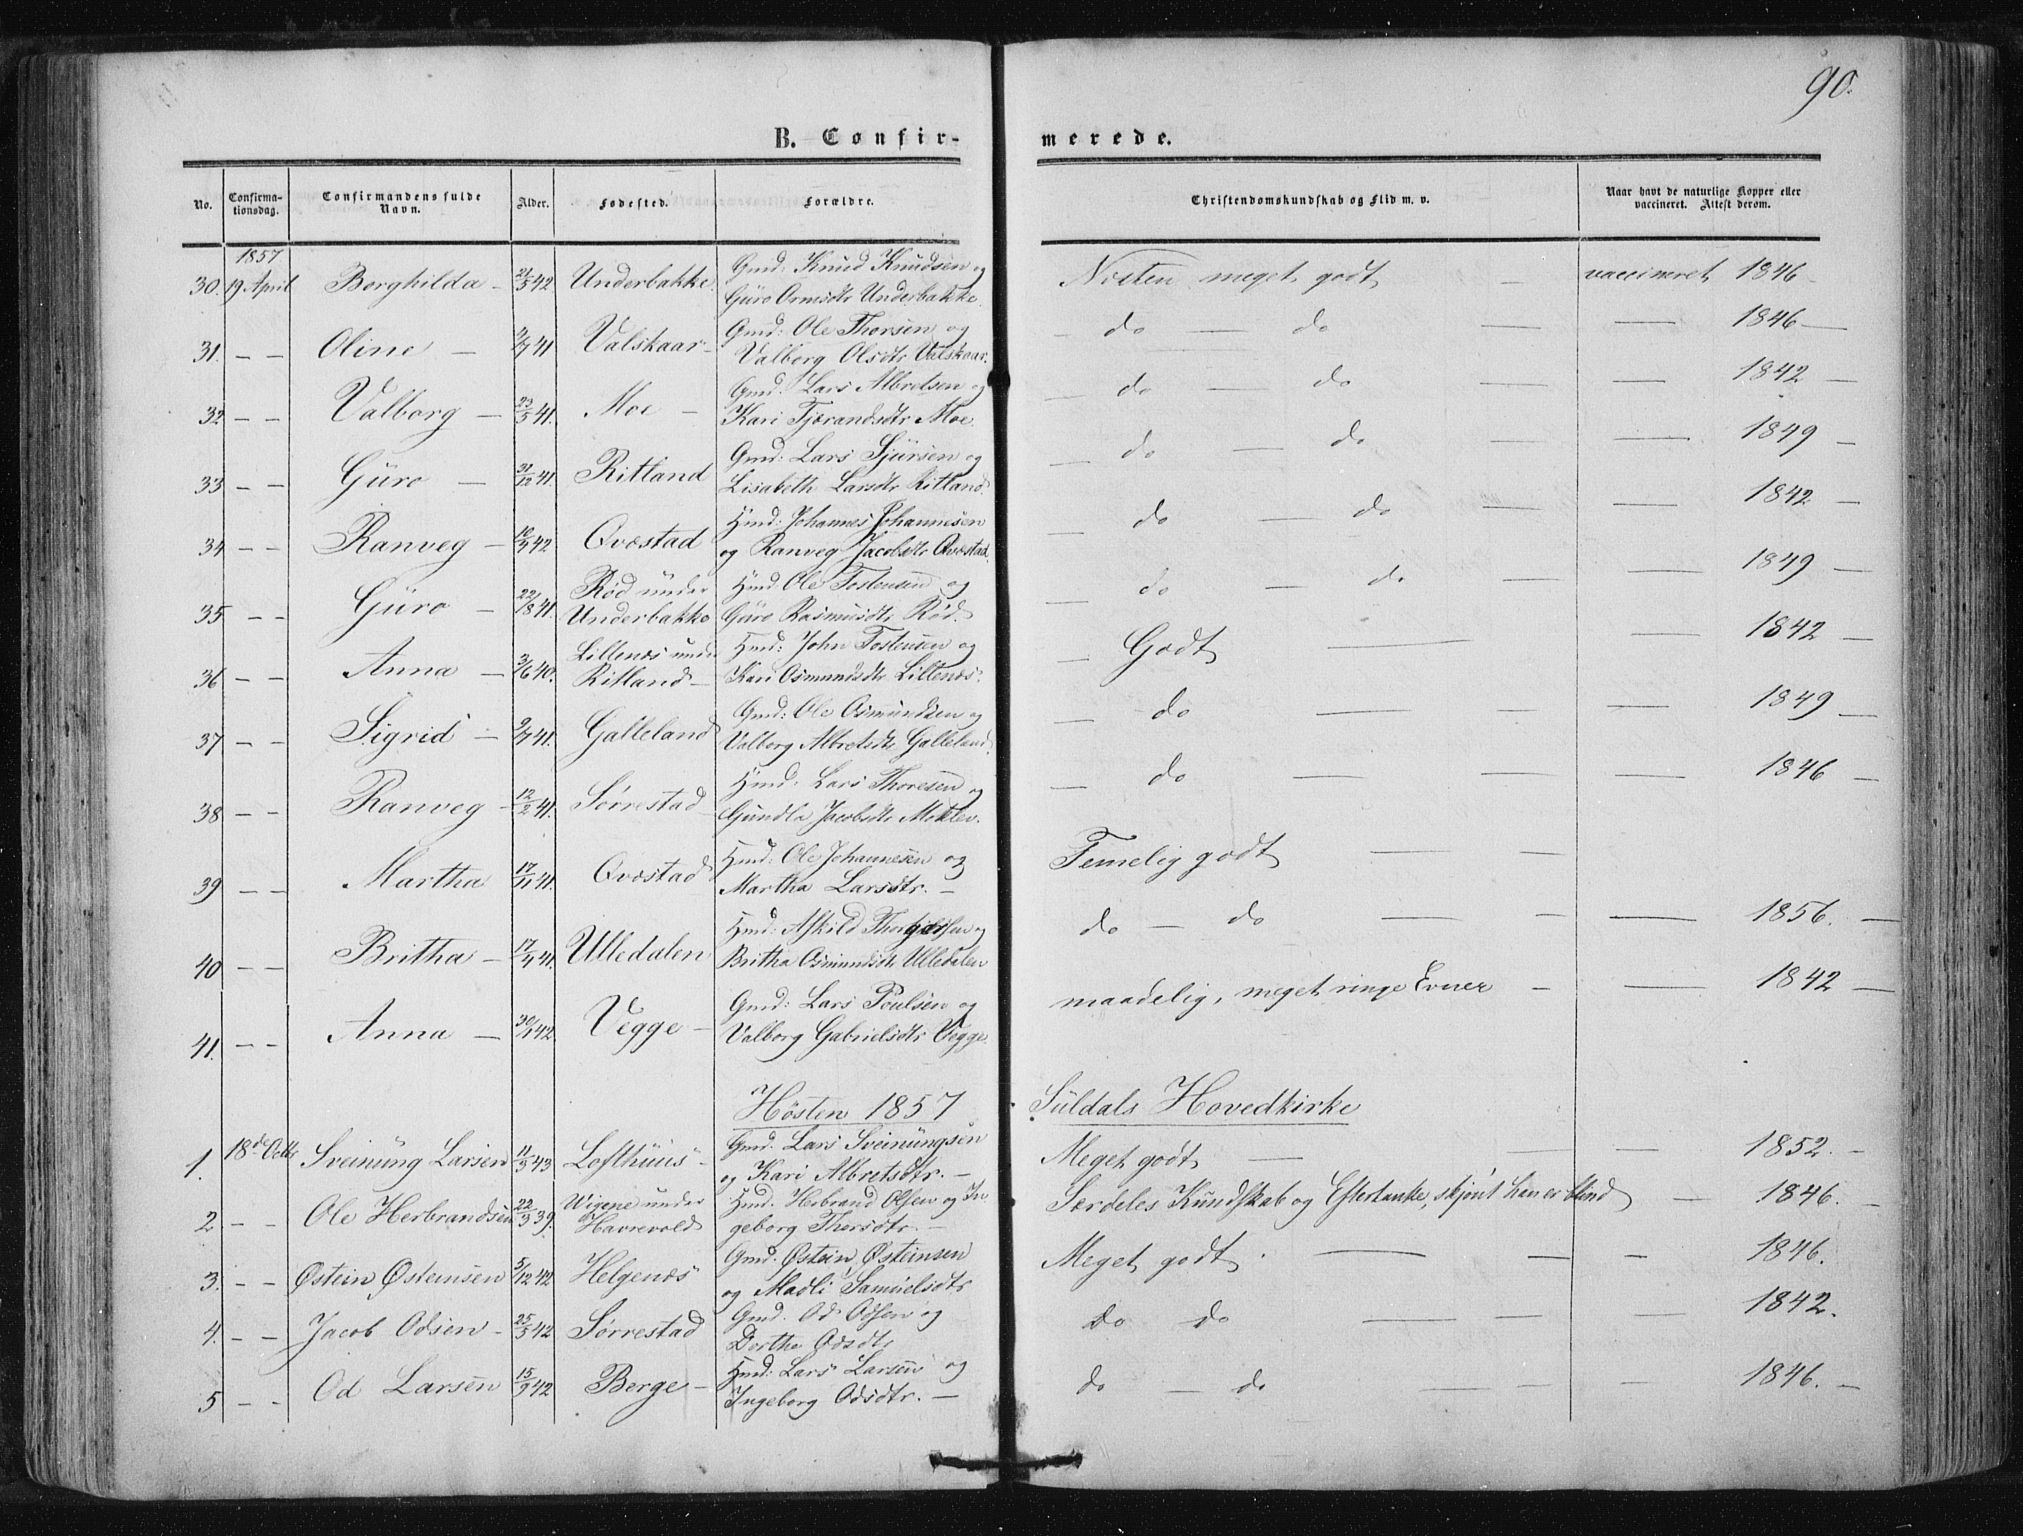 90.
B. Confirmerede.
No. Confirmationsdag. Confirmandens fulde Navn. Alder. Fødested. Forældre. Christendomskundskab og Flid m. v. Naar havt de naturlige Kopper eller vaccineret. Attest derom.
1857
30. 19 April Borghilda - 21/5 42 Underbakke. Gmd: Knud Knudsen og Guro Ormsdtr Underbakke. Næsten meget godt - vaccineret 1846
31. - - Oline - 2/7 41 Valskaar - Gmd: Ole Thorsen og Valborg Olsdtr Valskaar. do - do - - 1846 -
32 - - Valborg - 23/5 41. Moe - Gmd. Lars Albretsen og Kari Tjerandsdtr Moe. - do - do - - 1842 -
33 - - Guro - 30/12 41. Ritland Gmd: Lars Sjursen og Lisabeth Larsdtr Ritland. - do - do - - 1849 -
34 - - Ranveg - 10/4 42 Qvæstad Hmd: Johannes Johannesen og Ranveg Jacobsdtr Qvæstad. - do - do - - 1842 -
35 - - Guro - 22/8 41. Rød under Underbakke Hmd. Ole Tostensen og Guro Rasmusdtr Rød. - do - do - - 1849 -
36 - - Anna - 3/6 40. Lillenæs under Ritland - Hmd: John Tostensen og Kari Osmundsdtr Lillenæs. - Godt - - 1842 -
37 - - Sigrid - 2/7 41. Galleland Gmd: Ole Osmundsen og Valborg Albretsdtr Galleland. - do - - - 1849 -
38 - - Ranveg - 12/2 41. Sørrestad Hmd: Lars Thoresen og Gundla Jacobsdtr Moklev. - do - - - 1846 -
39 - - Martha 17/11 41. Qvæstad Hmd: Ole Johannesen og Martha Larsdtr. - Temelig godt - -
40 - - Britha - 17/9 41. Ulledalen Hmd: Askild Thorgilssen og Britha Osmundsdtr Ulledalen do - do - - - 1856. -
41. - - Anna - 30/1 42. Vegge - Gmd: Lars Poulsen og Valborg Gabrielsdtr Vegge. maadelig, meget ringe Evner - - 1842 -
Høsten 1857 Suldals Hovedkirke
1. 18de Octbr Sveinung Larsen 11/3 43 Lofthuus - Gmd. Lars Sveinungsen og Kari Albretsdtr. - Meget godt - - - 1852. -
2 - - Ole Herbrandsen 22/3 39. Wigene under Havrevold Hmd. Herbrand Olsen og Ingeborg Thorsdtr. - Særdeles Kundskab og Eftertanke, skjønt han er blind - 1846.
3. - - Østein Østeinsen 5/12 42 Helgenæs Gmd. Østein Østeinsen og Madli Samuelsdtr Meget godt. - - - 1846.
4. - - Jacob Odsen - 25/5 42 Sørrestad Gmd. Od Odsen og Dorthe Odsdtr do do - - - 1842.
5 - - Od Larsen 15/9 42 Berge - Hmd: Lars Larsen og Ingeborg Odsdtr. - do - do - - - 1846. -